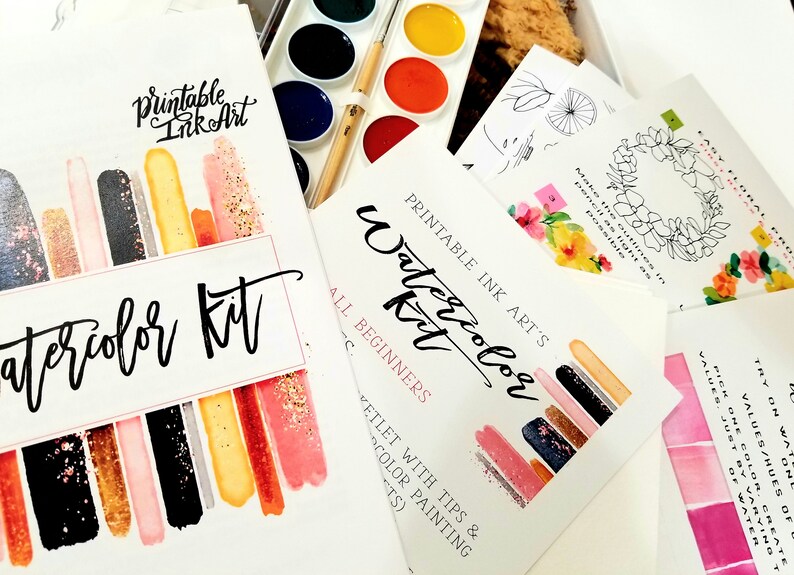 Printable
InkArt
Watercolor Kit
PRINTABLE INK ART'S
Watercolor
Kit
ALL BEGINNERS
WITH TIPS &
PAINTING
EASY FLORAL
Make the outlines in
pencil as light as
possible
1
2
3
TRY ON
VALUES/HUES OF
COLOR. CREATE
PICK ONE COLOR, VARYING
VALUES, JUST BY
OF WATER